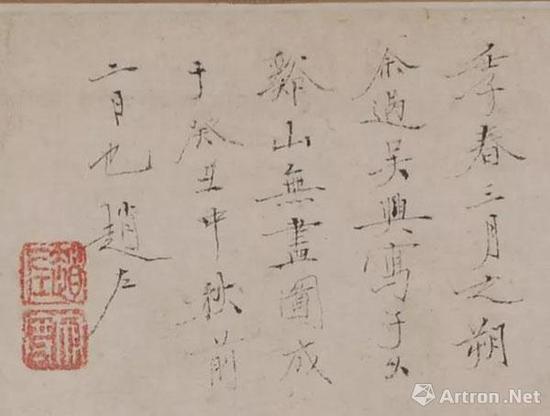 壬子春三月之朔
余過吳興寫子久
谿山無盡圖成
于癸丑中秋前
二日也趙左
趙左
Artron.Net